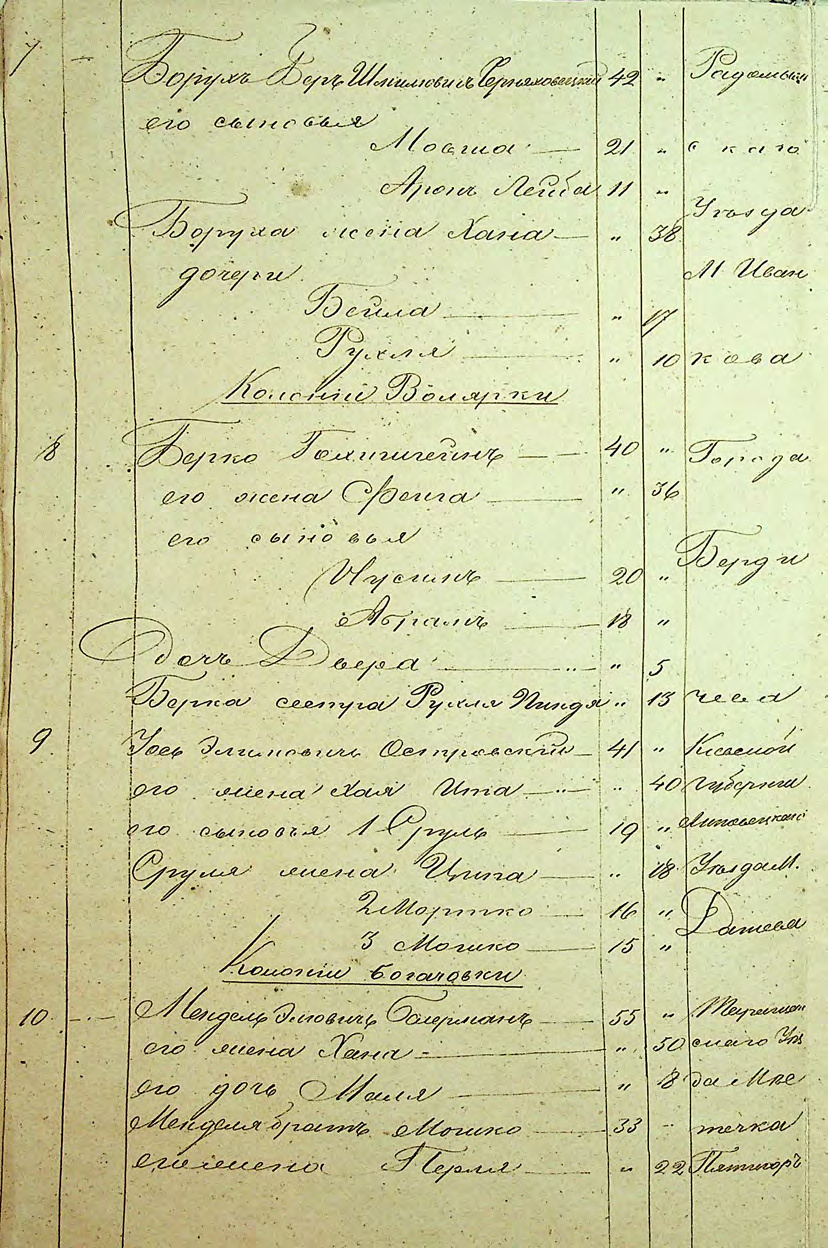 7 - Борухъ Беръ Шмулювичъ Черняховецкий 42 " Радомысль
его сыновья
Мовша 21 " скаго
Аронъ Лейба 11 "
Уезда
Боруха жена Хана " 38
дочери М Иван
Бейла " 17
Рухля " 10 кова
Колонии Волярки
8 Берко Гольштейнъ 40 " Города
его жена Фейга " 36
его сыновья
Нусинъ 20 " Берди
Абрамъ 18 "
дочь Двера " 5
Берка сестра Рухля Пиндя " 13 чева
9 Іось Элимовичъ Островский 41 " Киевской
его жена Хая Ита " 40 губернии
его сыновья 1 Сруль 19 " Липовецкаго
Сруля жена Ципа " 18 Уезда М.
2 Мортко 16 " Дашева
3 Мошко 15 "
Колонии Богачовки
10 - Мендель Элювичъ 55 " Таращан
его жена Хана " 50 скаго Уез
его дочь Маля " 8 да Мѣс
Менделя братъ Мошко 33 " течка
его жена Перля " 22 Пятигоръ